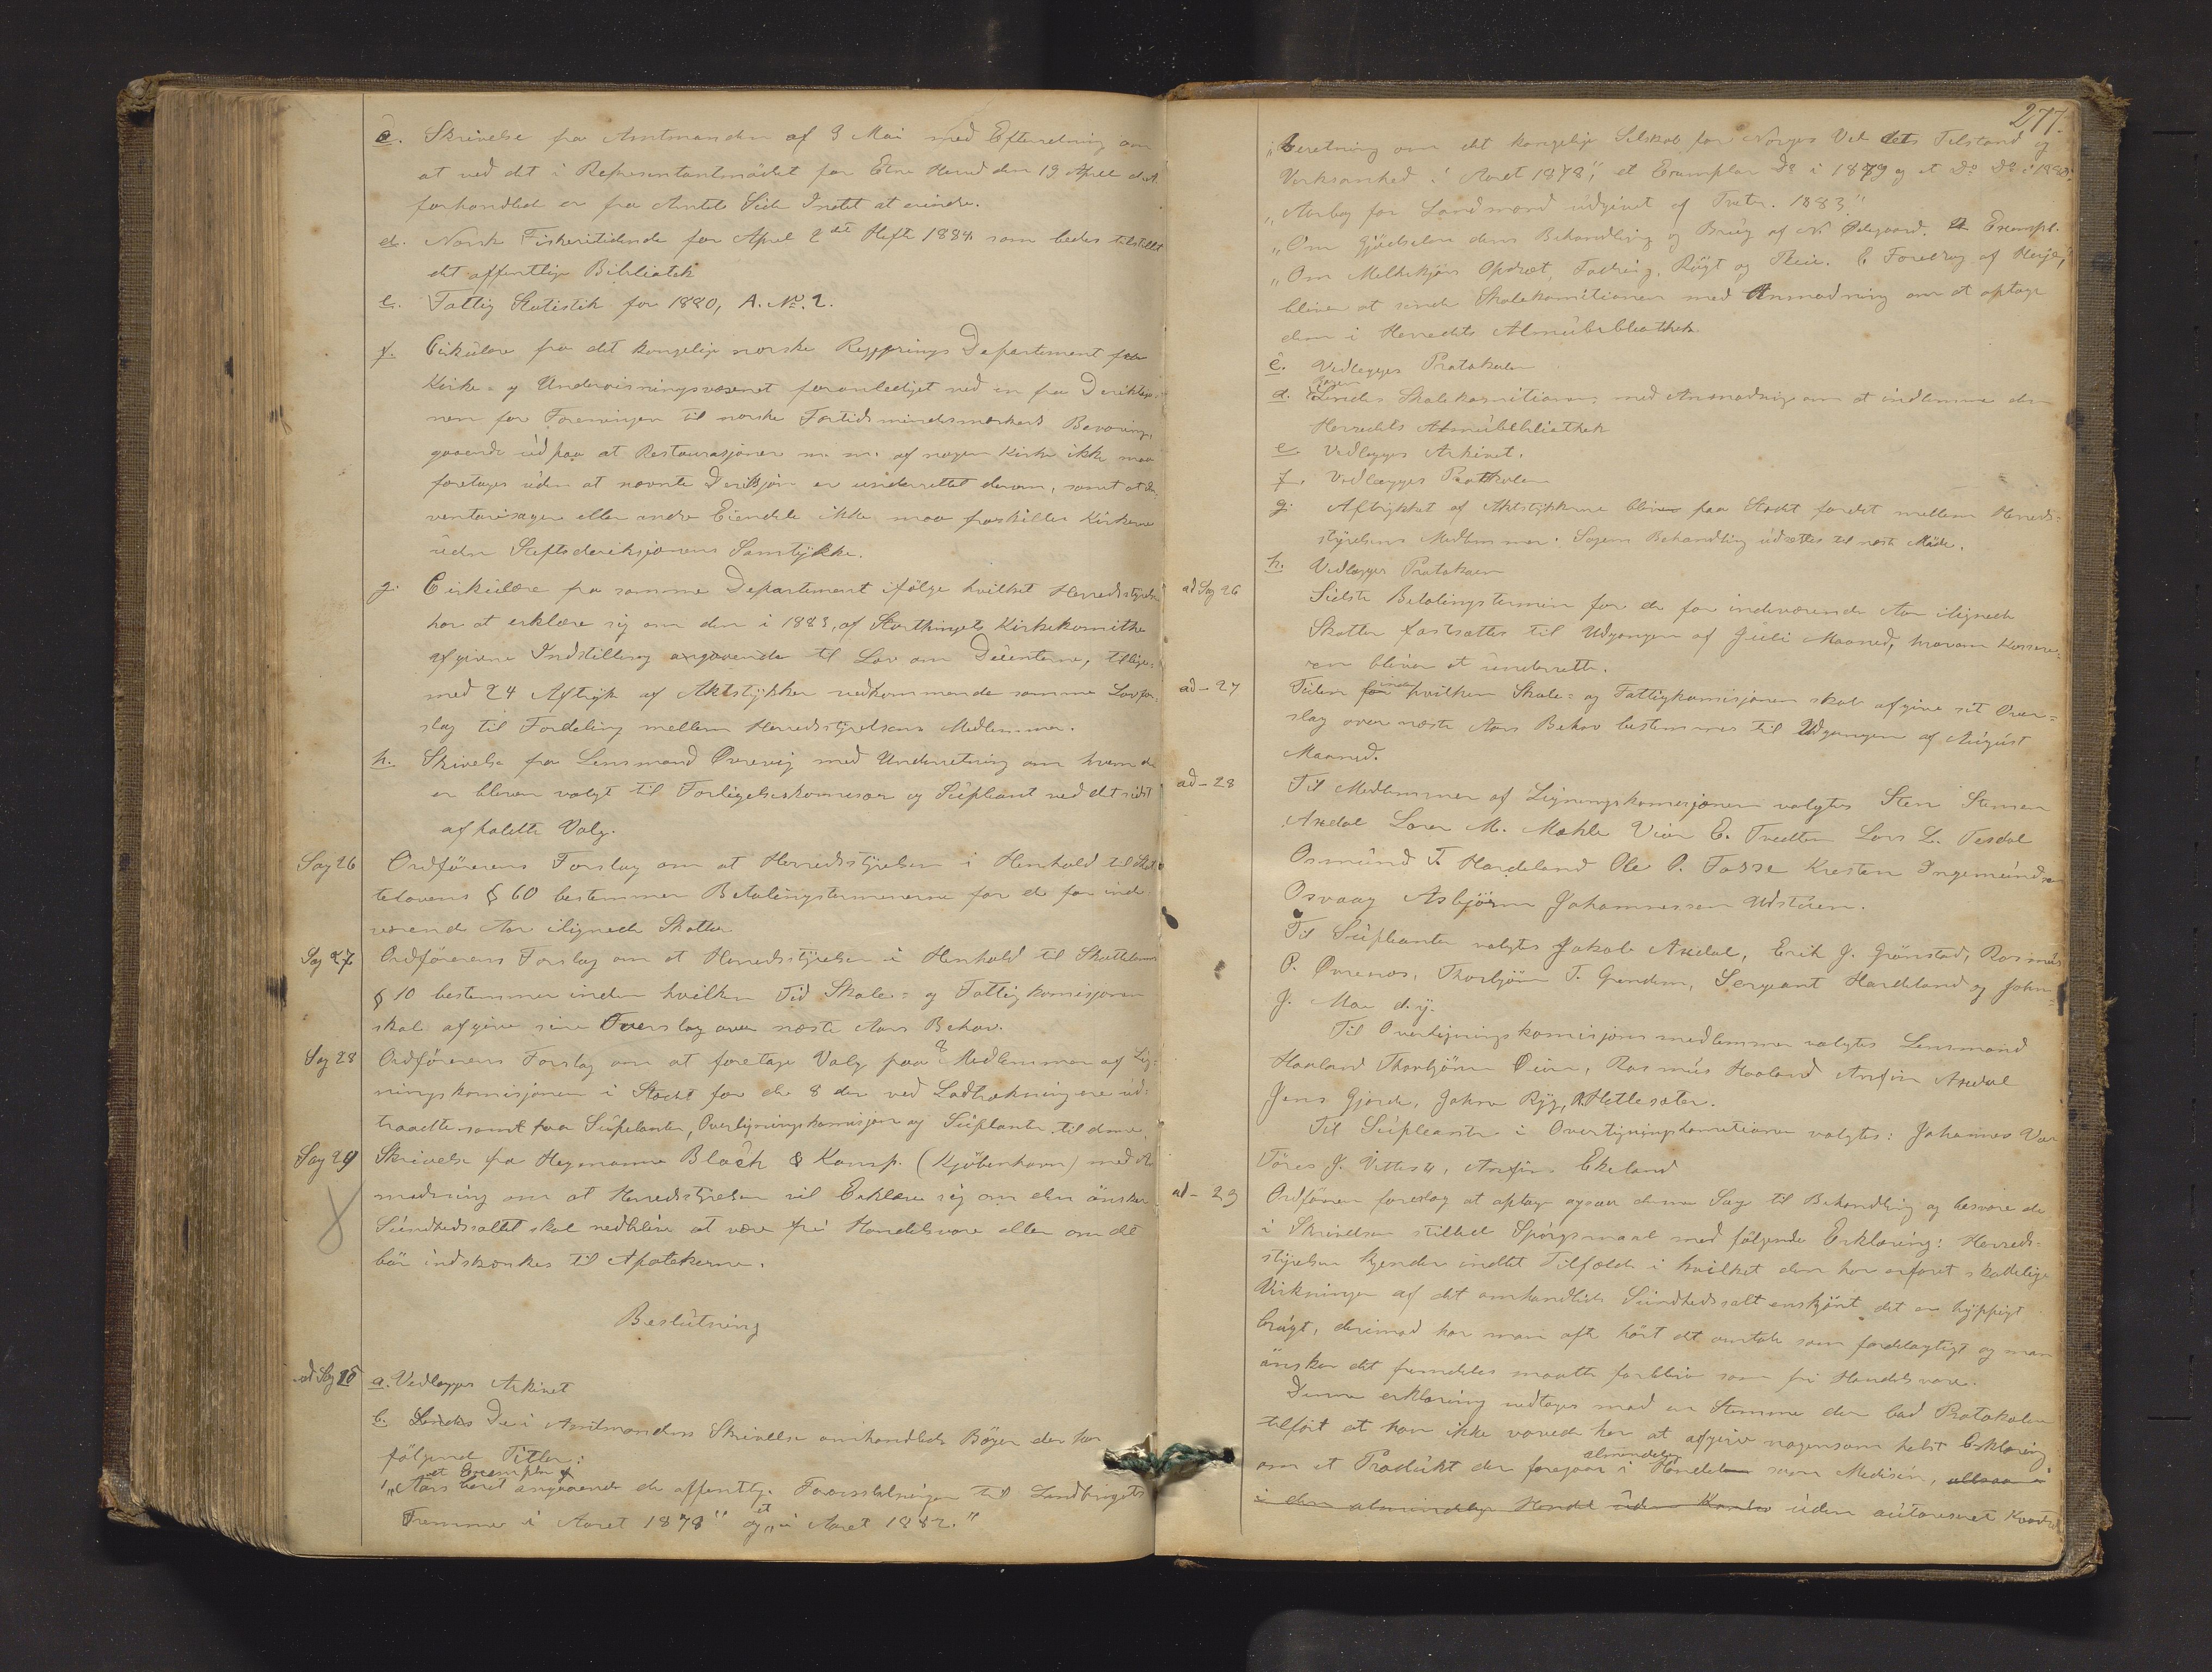 c. Skrivelse fra Amtmanden af 3 Mai med Efterretning om
at ved det i Representantmødet for Etne Herred den 19 April d.A.
forhandlede er fra Amtets Side Intet at erindre.
d. Norsk Fiskeritidende for April 2det Hefte 1884 som bedes tilstillet
det offentlige Bibliotek
e. Fattig Statistik for 1880, A. No. 2.
f. Cirkulære fra det kongelige norske Regjerings Departement for
Kirke- og Undervisningsvæsenet foranlediget ved en fra Direktsjo-
nen for Foreningen til norske Fortidsmindesmærkers Bevaring,
gaaende ud paa at Restaurasjoner m. m. af nogen Kirke ikke maa
foretages uden at nævnte Direksjon er underrettet derom, samt at In-
ventariesager eller andre Eiendele ikke maa fraskilles Kirkerne
uden Stiftsdireksjonens Samtykke.
g. Cirkulære fra samme Departement ifølge hvilket Herredsstyrelsen
har at erklære sig om den i 1883, af Storthingets Kirkekomithe
afgivne Indstilling angaaende til Lov om tillige-
med 24 Aftryk af Aktstykker vedkommende samme Lovfor-
slag til Fordeling mellem Herredsstyrelsens Medlemmer.
h. Skrivelse fra Lensmand Øvrevig med Underretning om hvem der
er bleven valgt til Forligelseskommisær og Supleant ved det sidst
afholdte Valg.
Sag 26 Ordførerens Forslag om at Herredsstyrelsen i Henhold til Skat-
telovens § 60 bestemmer Betalingsterminerne for de for inde-
værende Aar ilignede Skatter
Sag 27 Ordførerens Forslag om at Herredsstyrelsen i Henhold til Skattelovens
§ 10 bestemmer inden hvilken Tid Skole- og Fattigkomisjonen
skal afgive sine Overslag over næste Aars Behov.
Sag 28 Ordførerens Forslag om at foretage Valg paa 8 Medlemmer af Lig-
ningskomisjonen i Stedet for de 8 der ved Lodtrækning ere ud-
traadte samt paa Supleanter, Overligningskomisjon og Supleanter til denne.
Sag 29 Skrivelse fra Hegemanne Block & Komp. (Kjøbenhavn) med An-
modning om at Herredsstyrelsen vil Erklære sig om den ønsker
Sundhedssaltet skal vedblive at være fri Handelsvare eller om det
bør indskrænkes til Apotekerne.
Beslutning
ad Sag 25 a. Vedlægges Arkivet
b. Sendes De i Amtmandens Skrivelse omhandlede Bøger der har
følgende Titler:
et Exemplar af
"Aarsberet angaaende de offentlige Foranstaltninger til Landbrugets
Fremme i Aaret 1878" og et "i Aaret 1882."
277.
"Beretning om det kongelige Selskab for Norges Vel dets Tilstand og
Virksomhed i Aaret 1878", et Exemplar Do i 1879 og et Do Do i 1880.
"Aarbog for Landmænd udgivet af 1883"
"Om Gjødselen dens Behandling og Brug af N. Ødegaard. Exempl.
"Om Melkekjørs Opdræt, Fodring, Røgt og Pleie. 6 Foredrag af
bliver at sende Skolekomitionen med Anmodning om at optage
dem i Herredets Almubibliothek
c. Vedlægges Protokolen
d. Bogen Sendes Skolekomitionen med Anmodning om at indlemme den
Herredets Almubibliothek
e. Vedlægges Arkivet.
f. Vedlægges Protokolen
g. Aftrykket af Aktstykkerne bliver paa Stedet fordelt mellem Herreds-
styrelsens Medlemmer. Sagens Behandling udsættes til næste Møde.
h. Vedlægges Protokolen
ad Sag 26 Sidste Betalingstermin for de for indeværende Aar ilignede
Skatter fastsættes til Udgangen af Juli Maaned, hvorom Kassere-
ren bliver at underrette.
ad - 27 Tiden for inden hvilken Skole- og Fattigkomisjonen skal afgive sit Over-
slag over næste Aars Behov bestemmes til Udgangen af August
Maaned.
ad - 28 Til Medlemmer af Ligningskomisjonen valgtes Sten Stensen
Axdal Lars M. Mæhle Vier E. Tvedten Lars L. Tesdal
Osmund T. Hardeland Ole P. Fosse Kristen Ingemundsen
Osvaag Asbjørn Johannessen Udstuen.
Til Supleanter valgtes Jakob Axdal, Erik J. Grønstad, Rasmus
P. Øvrenæs, Thorbjørn T. Grindem, Sergeant Hardeland og John
J. Moe d.y.
Til Overligningskomisjons medlemmer valgtes Lensmand
Haaland Thorbjørn Øien, Rasmus Haaland Anfin Axdal
Jens Gjerde, Johan Ryg, Hettesæter.
Til Supleanter i Overligningskomitionen valgtes: Johannes
Tøres J. Anfin Ekeland
ad - 29 Ordføreren foreslog at optage ogsaa denne Sag til Behandling og besvare de
i Skrivelsen stillede Spørgsmaal med følgende Erklæring: Herreds-
styrelsen kjender indtet Tilfælde i hvilket den har erfaret skadelige
Virkninger af det omhandlede Sundhedssalt enskjønt det er hyppigt
brugt, derimod har man ofte hørt det omtale som fordelagtigt og man
ønsker det fremdeles maatte forblive som fri Handelsvare.
Denne erklæring vedtoges mod en Stemme der bad Protokolen
tilført at han ikke vovede her at afgive nogensom helst Erklæring
om et Produkt der foregaar i almindelig Handelen som Medisin, altsaa
i den almindelige Handel uden Kontro uden autoriseret